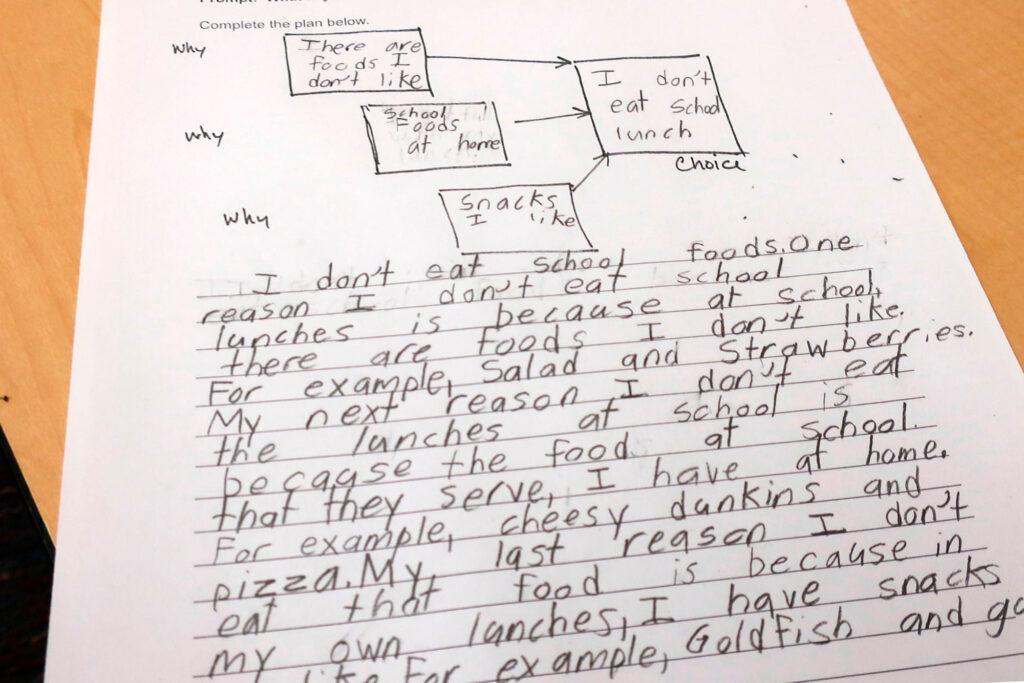 Complete the plan below.
Why
There are
foods I
don't like
I don't
eat school
lunch
Choice
Why
School
Foods
at home
Why
Snacks
I like
I don't eat school foods. One
reason I don't eat school
lunches is because at school,
there are foods I don't like.
For example, Salad and Strawberries.
My next reason I don't eat
the lunches at school is
because the food at school.
that they serve, I have at home.
For example, cheesy dunkins and
pizza. My last reason I don't
eat that food is because in
my own lunches, I have snacks
I like. For example, Goldfish and